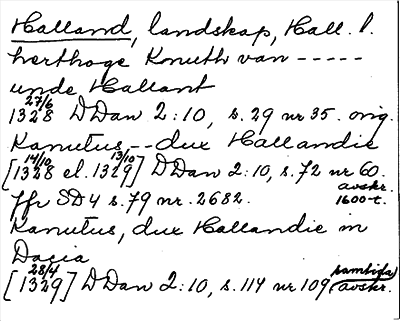 Halland, landskap, Hall. l.
herthoge Knuth van -----
unde Hallant
27/6
1328 DDan 2:10, s. 29 nr 35. orig.
Kanutus, -- dux Hallandie
14/10 13/10
[1328 el. 1329] DDan 2:10, s. 72 nr 60.
avskr.
jfr SD 4 s. 79 nr. 2682. 1600-t.
Kanutus, dux Hallandie in
Dacia
28/4 samtida
[1329] DDan 2:10, s. 114 nr 109 (avskr.